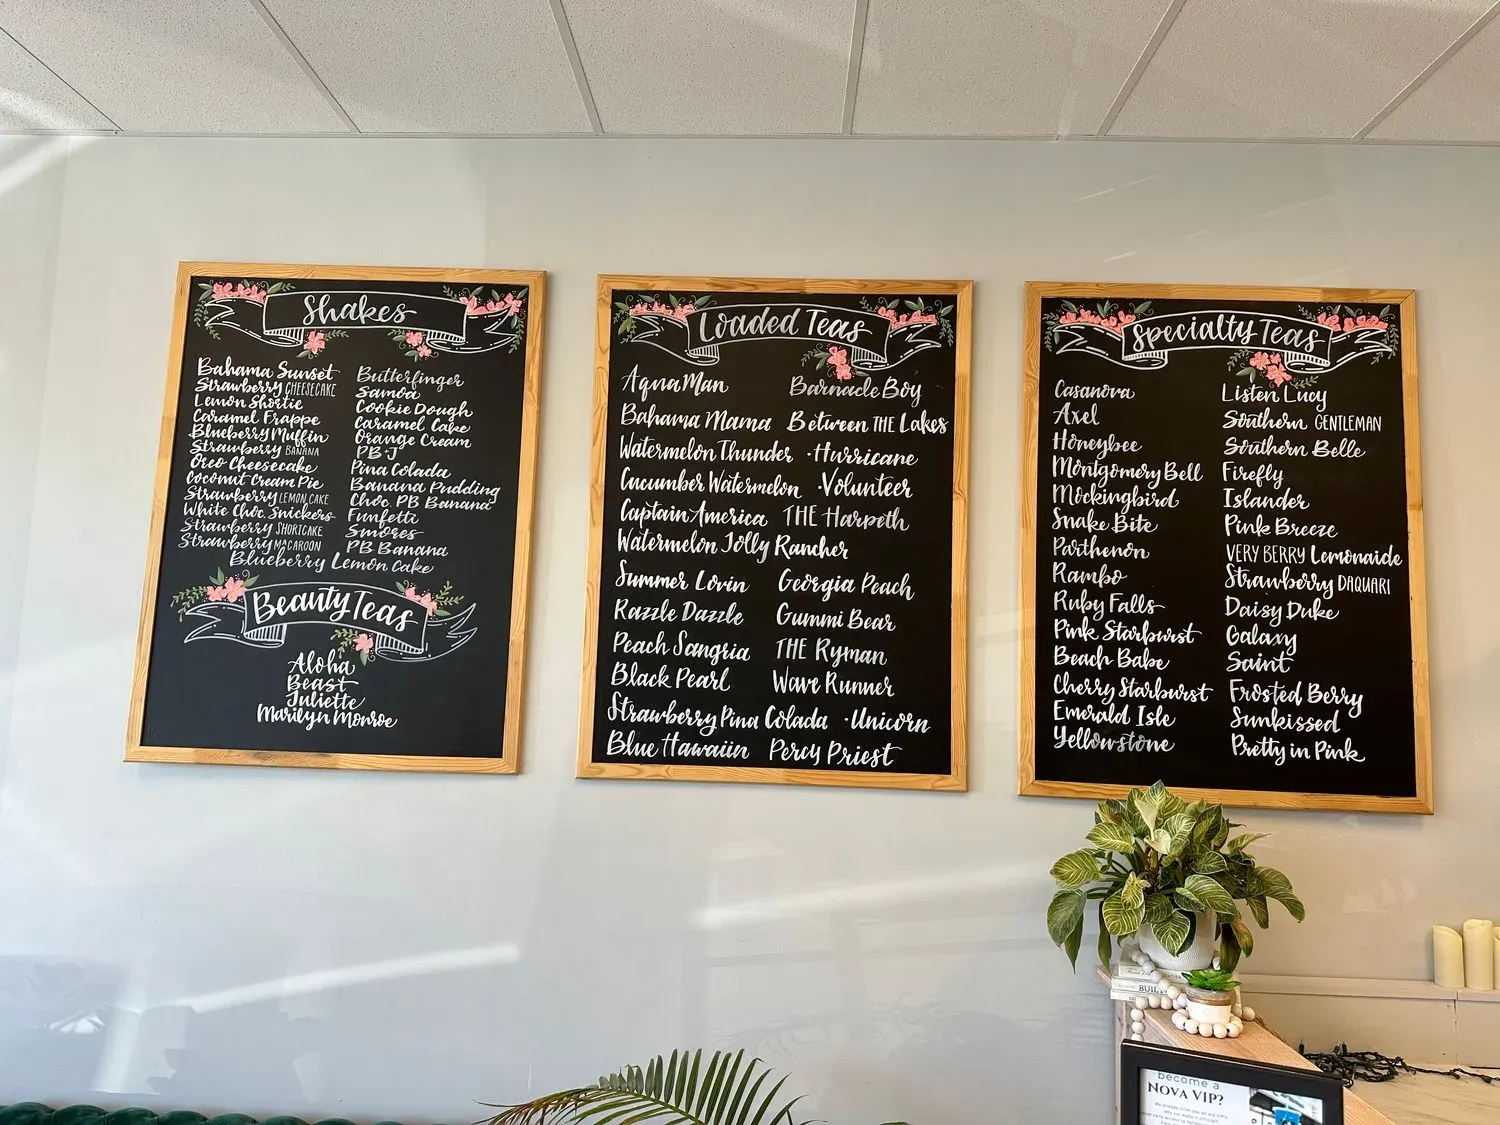 Shakes
Bahama Sunset
Strawberry CHEESECAKE
Lemon Shortie
Caramel Frappe
Blueberry Muffin
Strawberry BANANA
Oreo Cheesecake
Coconut Cream Pie
Strawberry LEMON CAKE
White Choc. Snickers
Strawberry SHORTCAKE
Strawberry MACAROON
Butterfinger
Samoa
Cookie Dough
Caramel Cake
Orange Cream
PB·J
Pina Colada
Banana Pudding
Choc. PB Banana
Funfetti
Smores
PB Banana
Blueberry Lemon Cake
Beauty Teas
Aloha
Beast
Juliette
Marilyn Monroe
Loaded Teas
Aqua Man Barnacle Boy
Bahama Mama Between THE Lakes
Watermelon Thunder · Hurricane
Cucumber Watermelon · Volunteer
Captain America THE Harpeth
Watermelon Jolly Rancher
Summer Lovin Georgia Peach
Razzle Dazzle Gummi Bear
Peach Sangria THE Ryman
Black Pearl Wave Runner
Strawberry Pina Colada · Unicorn
Blue Hawaiin Percy Priest
Specialty Teas
Casanova
Axel
Honeybee
Montgomery Bell
Mockingbird
Snake Bite
Parthenon
Rambo
Ruby Falls
Pink Starburst
Beach Babe
Cherry Starburst
Emerald Isle
Yellowstone
Listen Lucy
Southern GENTLEMAN
Southern Belle
Firefly
Islander
Pink Breeze
VERY BERRY Lemonaide
Strawberry DAQUARI
Daisy Duke
Galaxy
Saint
Frosted Berry
Sunkissed
Pretty in Pink
BUILT
become a
NOVA VIP?